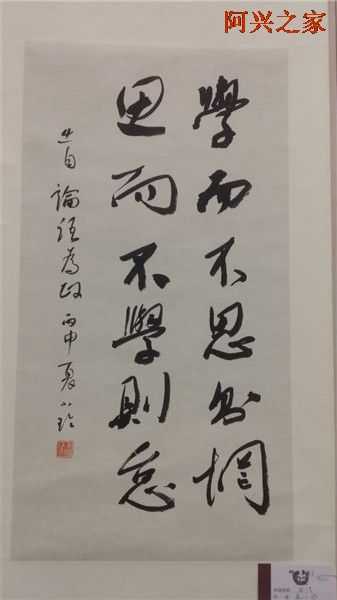 阿兴之家
學而不思則惘
思而不學則怠
自論語為政丙申夏